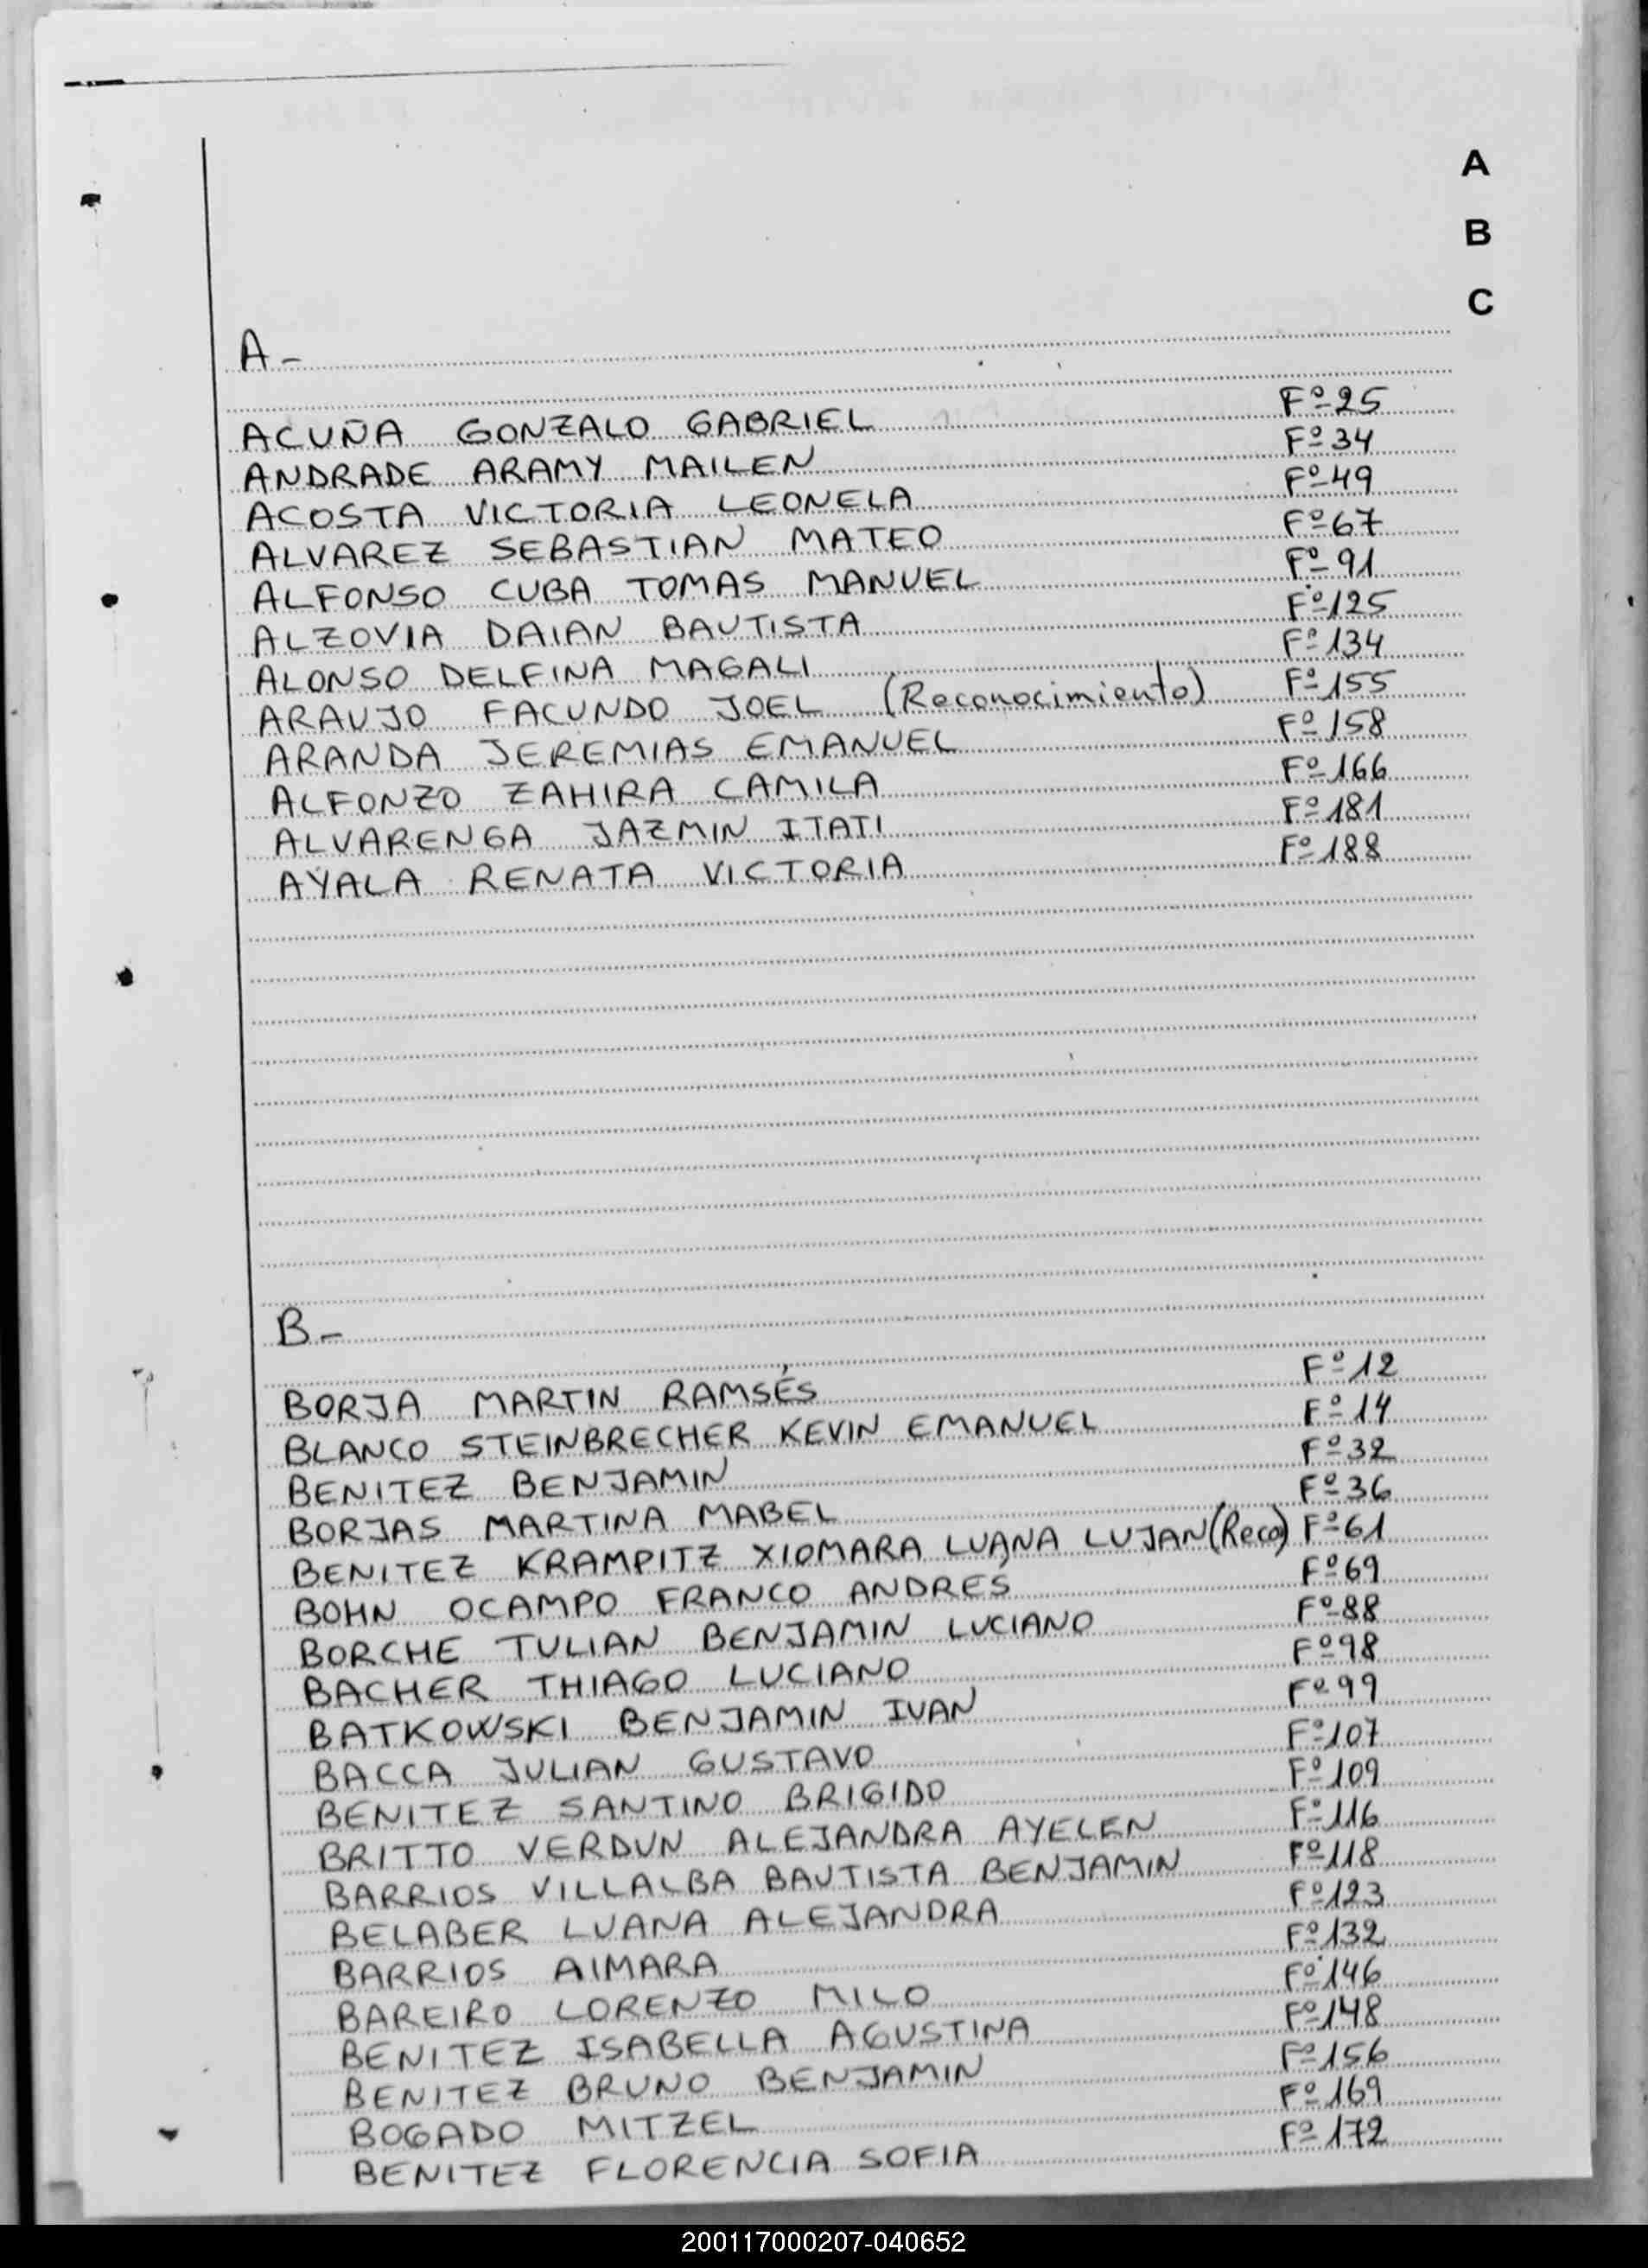 A
B
C
A-
ACUÑA GONZALO GABRIEL Fº 25
ANDRADE ARAMY MAILEN Fº 34
ACOSTA VICTORIA LEONELA Fº 49
ALVAREZ SEBASTIAN MATEO Fº 67
ALFONSO CUBA TOMAS MANUEL Fº 91
ALZOVIA DAIAN BAUTISTA Fº 125
ALONSO DELFINA MAGALI Fº 134
ARAUJO FACUNDO JOEL (Reconocimiento) Fº 155
ARANDA JEREMIAS EMANUEL Fº 158
ALFONZO ZAHIRA CAMILA Fº 166
ALVARENGA JAZMIN ITATI Fº 181
AYALA RENATA VICTORIA Fº 188
B-
BORJA MARTIN RAMSÉS Fº 12
BLANCO STEINBRECHER KEVIN EMANUEL Fº 14
BENITEZ BENJAMIN Fº 32
BORJAS MARTINA MABEL Fº 36
BENITEZ KRAMPITZ XIOMARA LUANA LUJAN (Reco) Fº 61
BOHN OCAMPO FRANCO ANDRES Fº 69
BORCHE TULIAN BENJAMIN LUCIANO Fº 88
BACHER THIAGO LUCIANO Fº 98
BATKOWSKI BENJAMIN IVAN Fº 99
BACCA JULIAN GUSTAVO Fº 107
BENITEZ SANTINO BRIGIDO Fº 109
BRITTO VERDUN ALEJANDRA AYELEN Fº 116
BARRIOS VILLALBA BAUTISTA BENJAMIN Fº 118
BELABER LUANA ALEJANDRA Fº 123
BARRIOS AIMARA Fº 132
BAREIRO LORENZO MILO Fº 146
BENITEZ ISABELLA AGUSTINA Fº 148
BENITEZ BRUNO BENJAMIN Fº 156
BOGADO MITZEL Fº 169
BENITEZ FLORENCIA SOFIA Fº 172
200117000207-040652